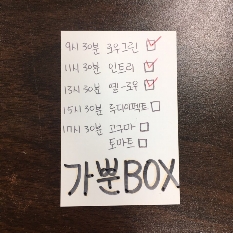 9시 30분 로우그린 ☑
11시 30분 안트리 ☑
13시 30분 옐-로우 ☑
15시 30분 쥬디이펙트 ☐
17시 30분 고구마 ☐
토마토 ☐
가뿐BOX